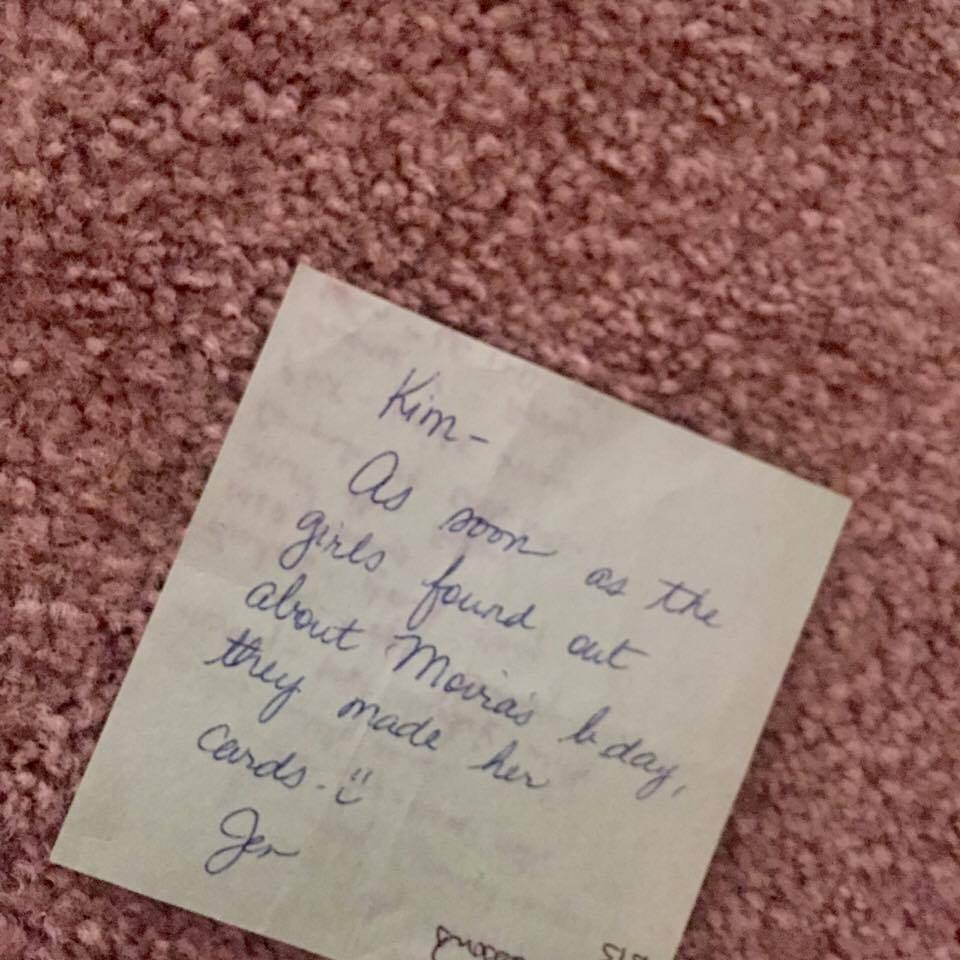 Kim-
As soon as the
girls found out
about Moira's b-day,
they made her
cards. ü
Jen